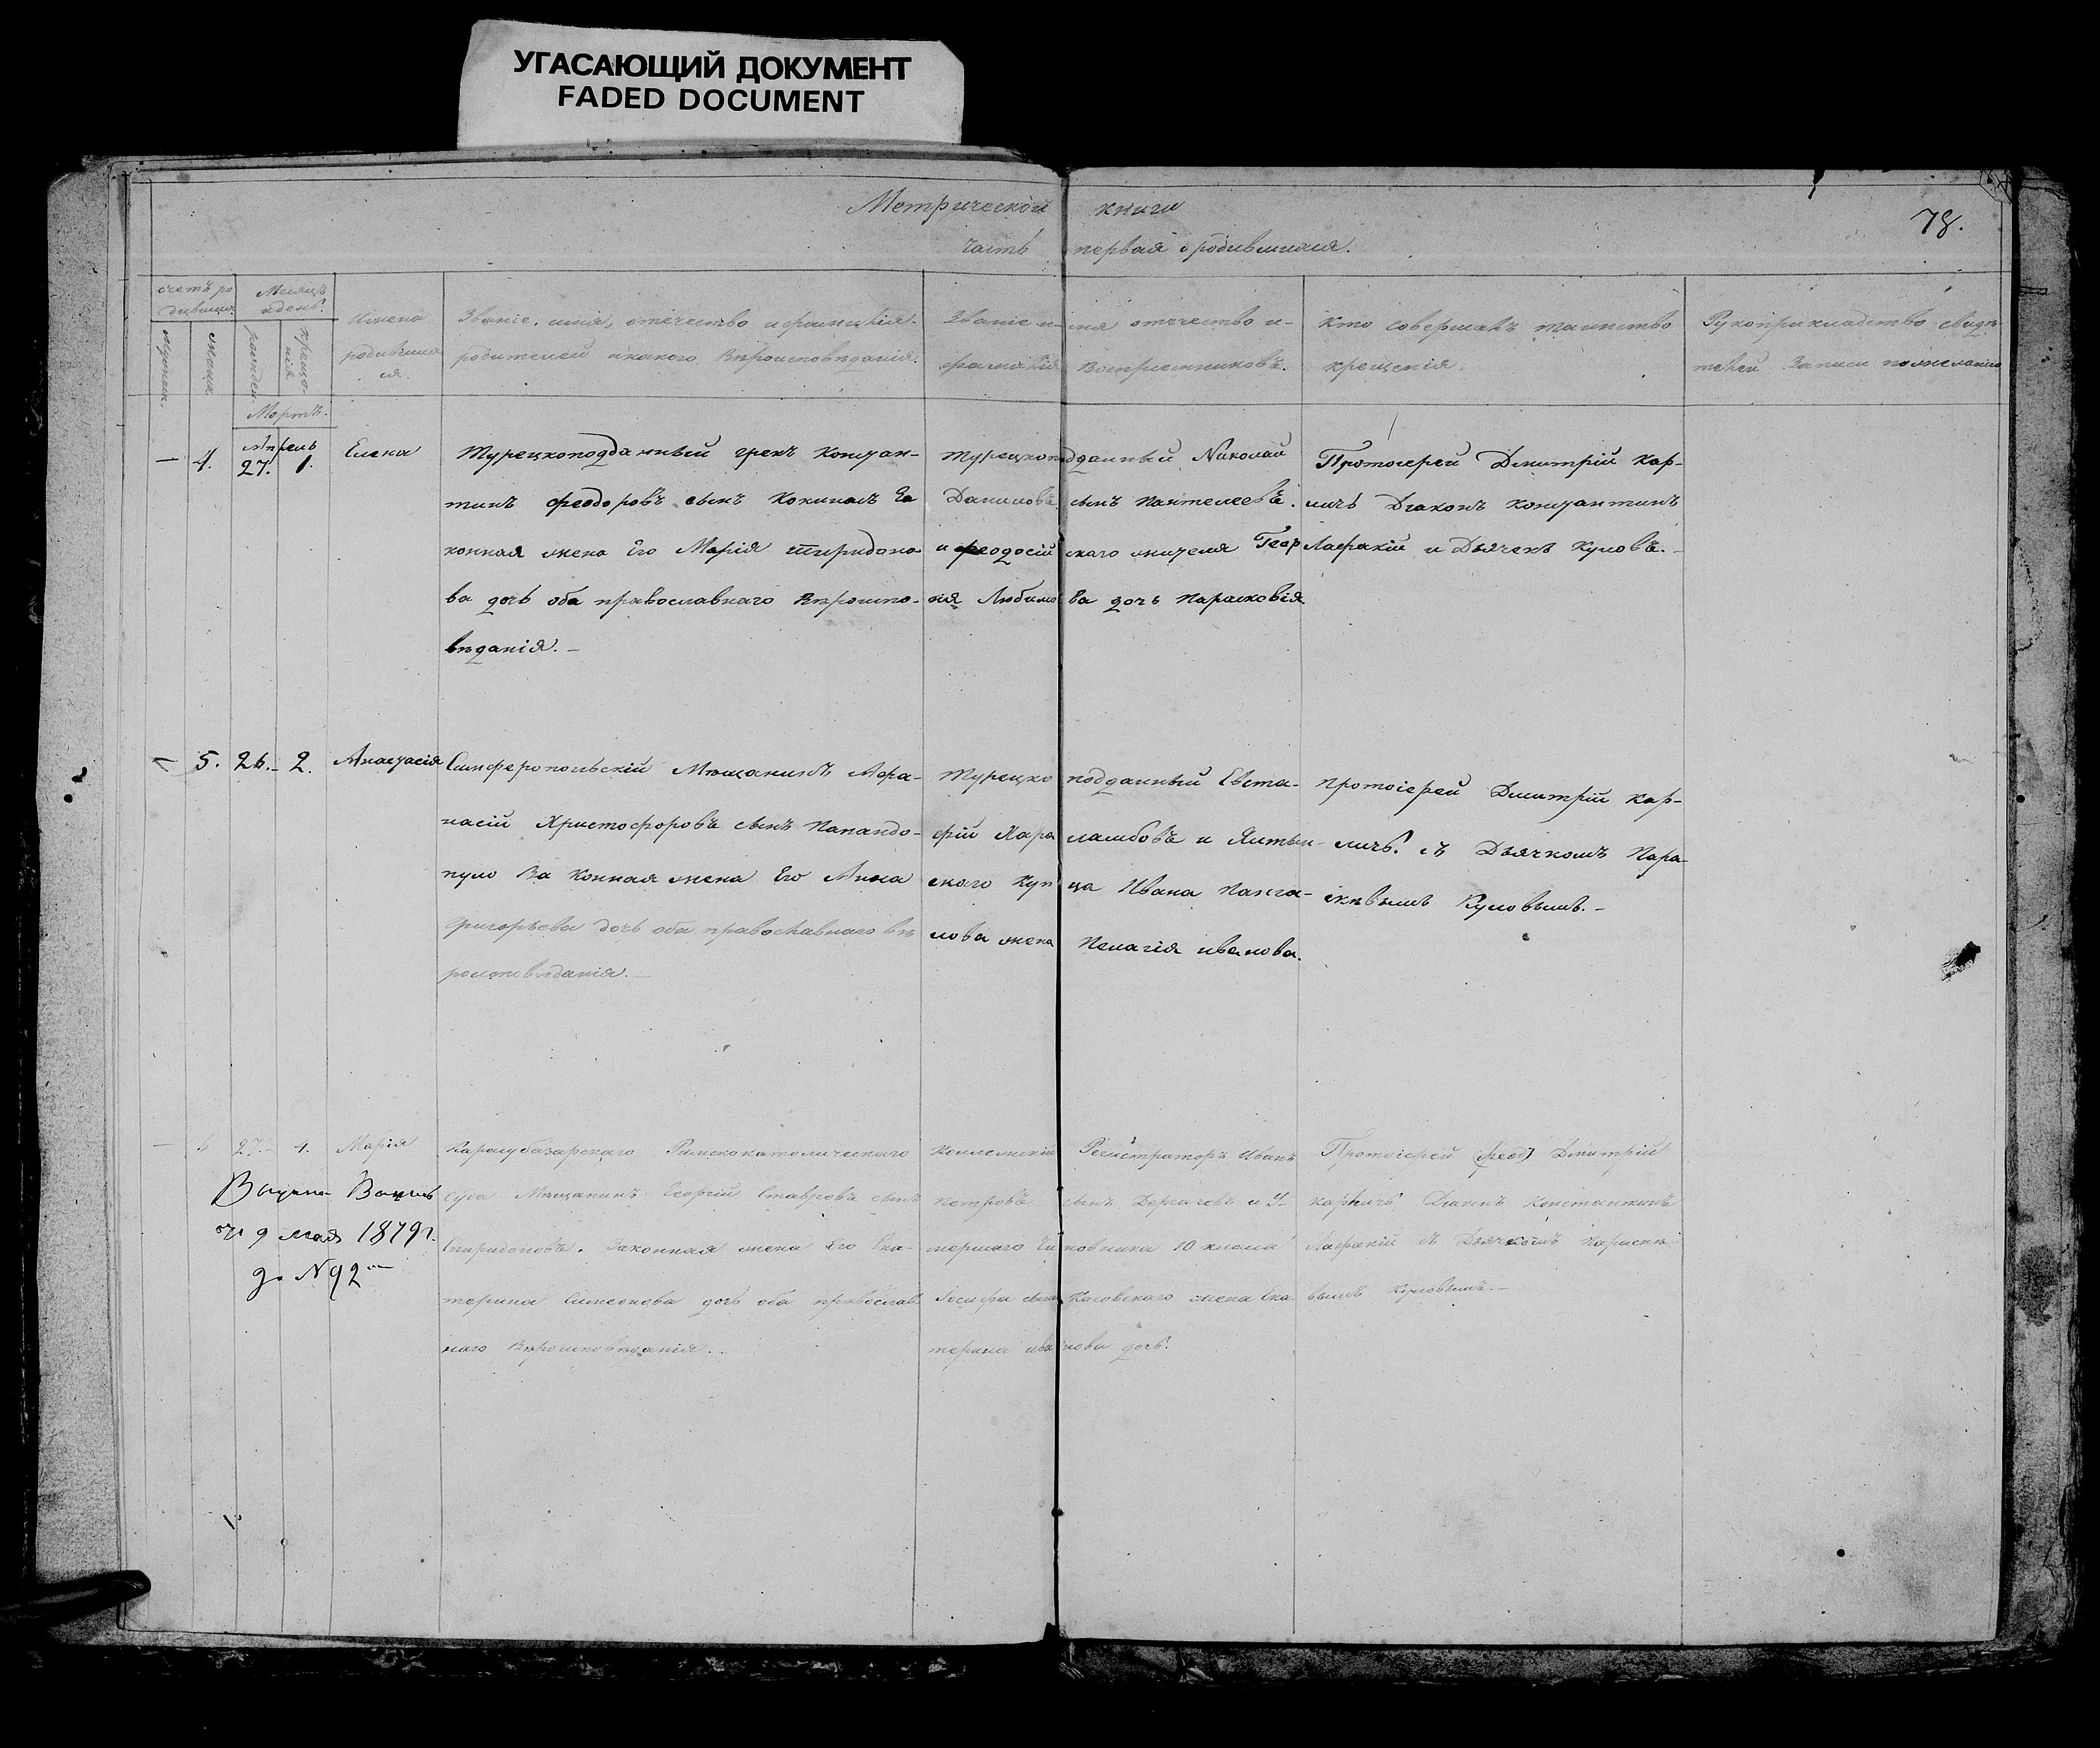 УГАСАЮЩИЙ ДОКУМЕНТ
FADED DOCUMENT
Метрической книги
78.
часть первая о родившихся.
счетъ ро
дившихся
мужеска.
женска
Месяцъ
и день.
рожден.
креще-
нія
Имена
родивших
ся.
Званіе, имя, отечество и фамилія
родителей и какого вѣроисповѣданія.
Званіе имя отечество и
фамилія воспріемниковъ.
Кто совершалъ таинство
крещенія.
Рукоприкладство свидѣ-
телей записи по желанію
Мартъ.
Апрель
— 4. 27. 1. Елена
Турецкоподданный грекъ Констан-
тинъ Феодоровъ сынъ Кокиналъ За
конная жена Его Марія Спиридоно-
ва дочь оба православнаго вѣроиспо-
вѣданія. —
Турецкоподданный Николай
Даниловъ сынъ Пантелеевъ.
и Феодосійскаго жителя Геор
гія Любимова дочь Парасковія
Протоіерей Дмитрій Кар-
личъ Діаконъ Константинъ
Лафакій и Дьячекъ Куловъ. —
— 5. 26. 2. Анастасія
Симферопольскій Мѣщанинъ Афа-
насій Христофоровъ сынъ Папандо-
пуло За конная жена Его Анна
Григорьева дочь оба православнаго вѣ
роисповѣданія. —
Турецко подданный Евста-
фій Хараламбовъ и Ялтин-
скаго Купца Ивана Панга-
лова жена Пелагія иванова.
Протоіерей Дмитрій Кар-
личъ. съ Дьячкомъ Пара-
скѣвымъ Куловымъ. —
— 6 27. 4. Марія
Карасубазарскаго Римскокатолическаго
Суда Мѣщанинъ Георгій Ставровъ сынъ
Спиридоновъ. Законная жена Его Ека-
терина Симеонова дочь оба православ-
наго вѣроисповѣданія.
Коллежскій Регистраторъ Иванъ
Петровъ сынъ Дергачевъ и У-
мершаго Чиновника 10 класса
Іосифа сына Косовскаго жена Ека-
терина ивановa дочь.
Протоіерей (Феод) Дмитрій
Карличъ Діаконъ Константинъ
Лафакій съ Дьячкомъ Параскѣ-
вымъ Куловымъ. —
9 мая 1879 г.
за №92